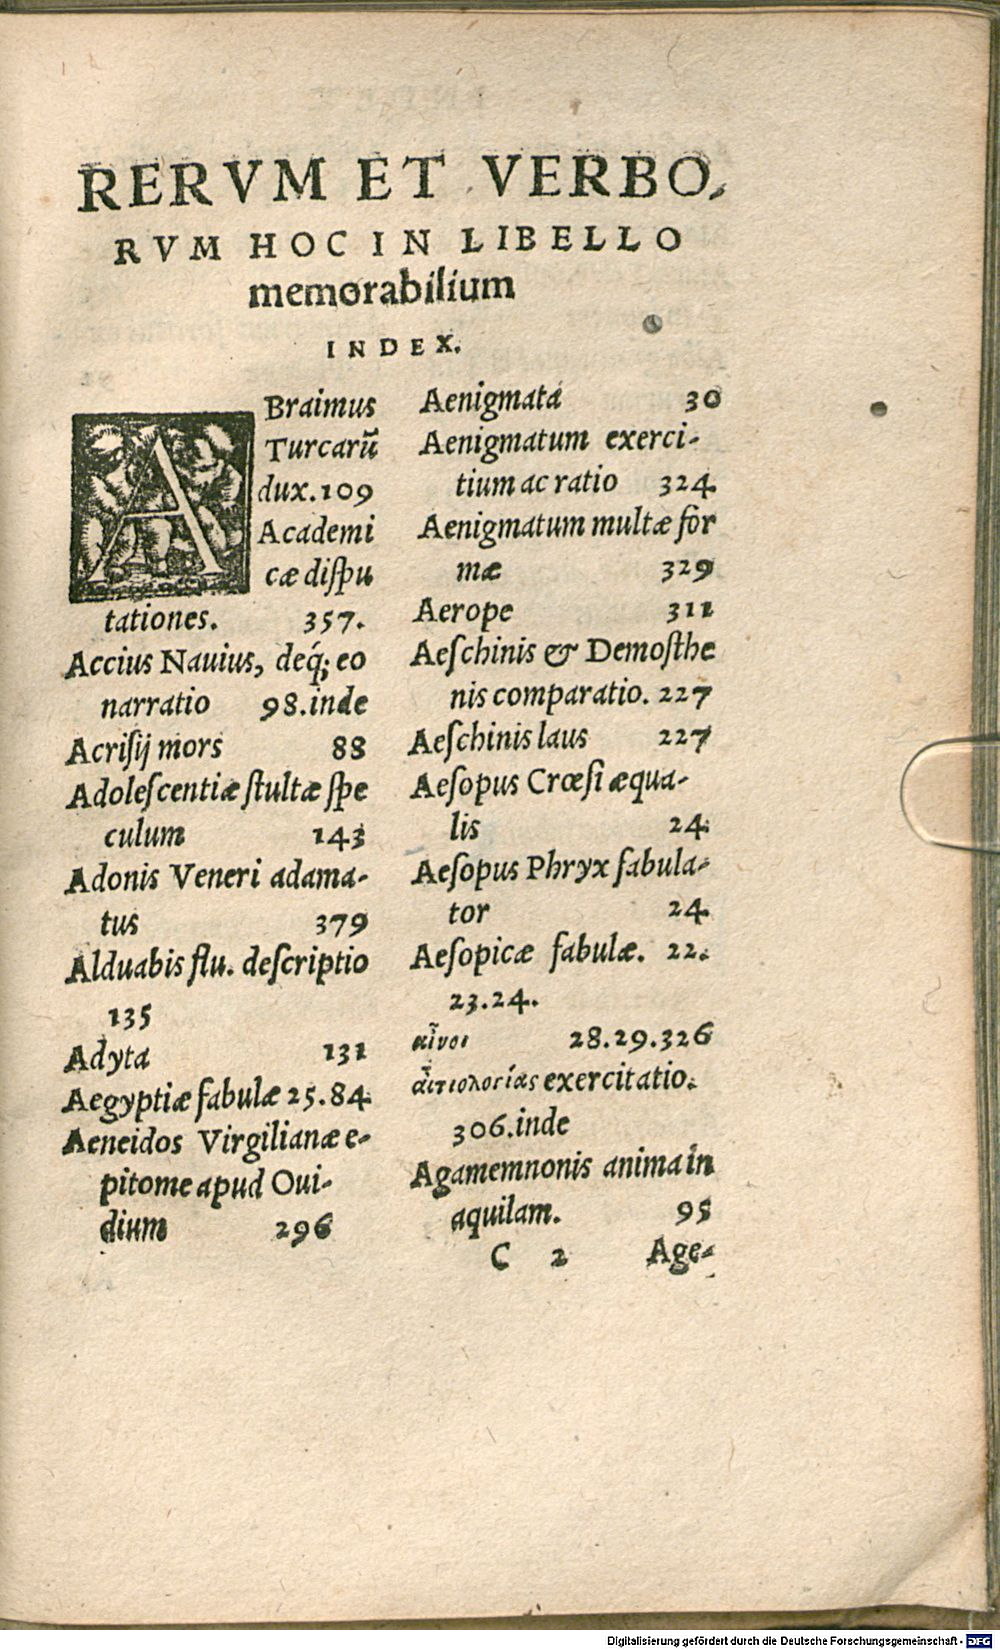 RERVM ET VERBO,
RVM HOC IN LIBELLO
memorabilium
INDEX.
ABraimus
Turcarũ
dux.109
Academi
cæ diſpu
tationes. 357.
Accius Nauius, deq́; eo
narratio 98.inde
Acriſij mors 88
Adoleſcentiæ ſtultæ ſpe
culum 143
Adonis Veneri adama-
tus 379
Alduabis flu. deſcriptio
135
Adyta 131
Aegyptiæ fabulæ 25.84.
Aeneidos Virgilianæ e-
pitome apud Oui-
dium 296
Aenigmata 30
Aenigmatum exerci-
tium ac ratio 324.
Aenigmatum multæ for
mæ 329
Aerope 311
Aeſchinis & Demoſthe
nis comparatio. 227
Aeſchinis laus 227
Aeſopus Crœſi æqua-
lis 24.
Aeſopus Phryx fabula-
tor 24.
Aeſopicæ fabulæ. 22.
23.24.
αἶνοι 28.29.326
exercitatio.
306.inde
Agamemnonis anima in
aquilam. 95
C 2 Age-
Digitalisierung gefördert durch die Deutsche Forschungsgemeinschaft - DFG